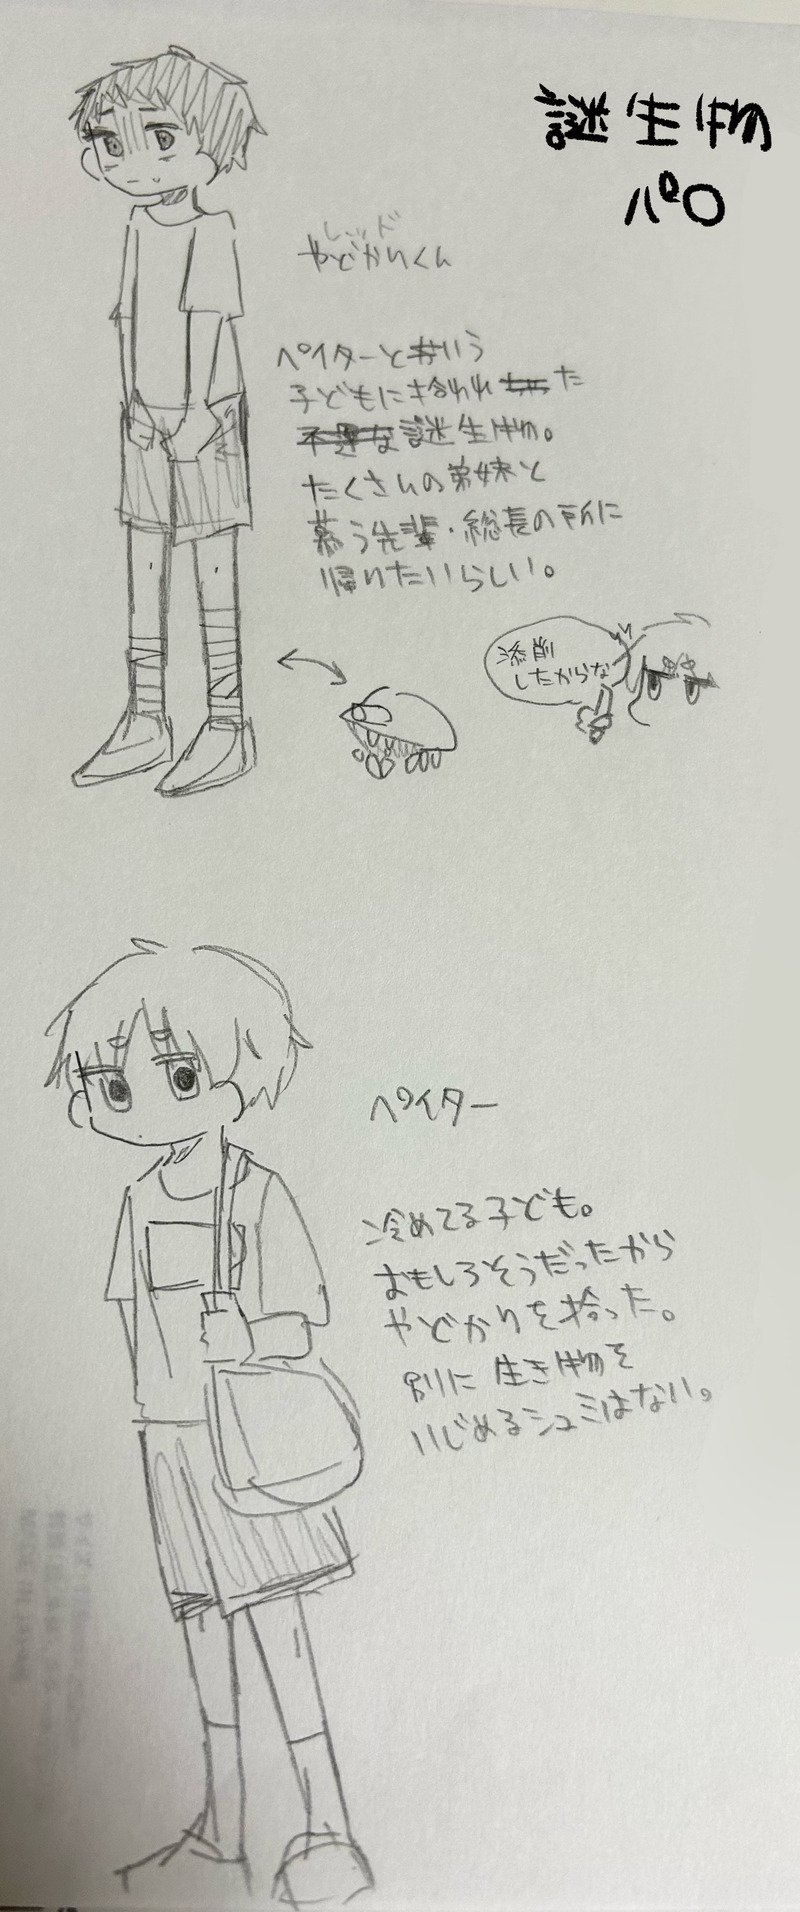 謎生物
パロ
レッド
やどかりくん
ペイターという
子どもに拾われた
不運な謎生物。
たくさんの弟妹と
慕う先輩・総長の所に
帰りたいらしい。
添削
したからな
ペイター
冷めてる子ども。
おもしろそうだったから
やどかりを拾った。
別に生き物を
いじめるシュミはない。